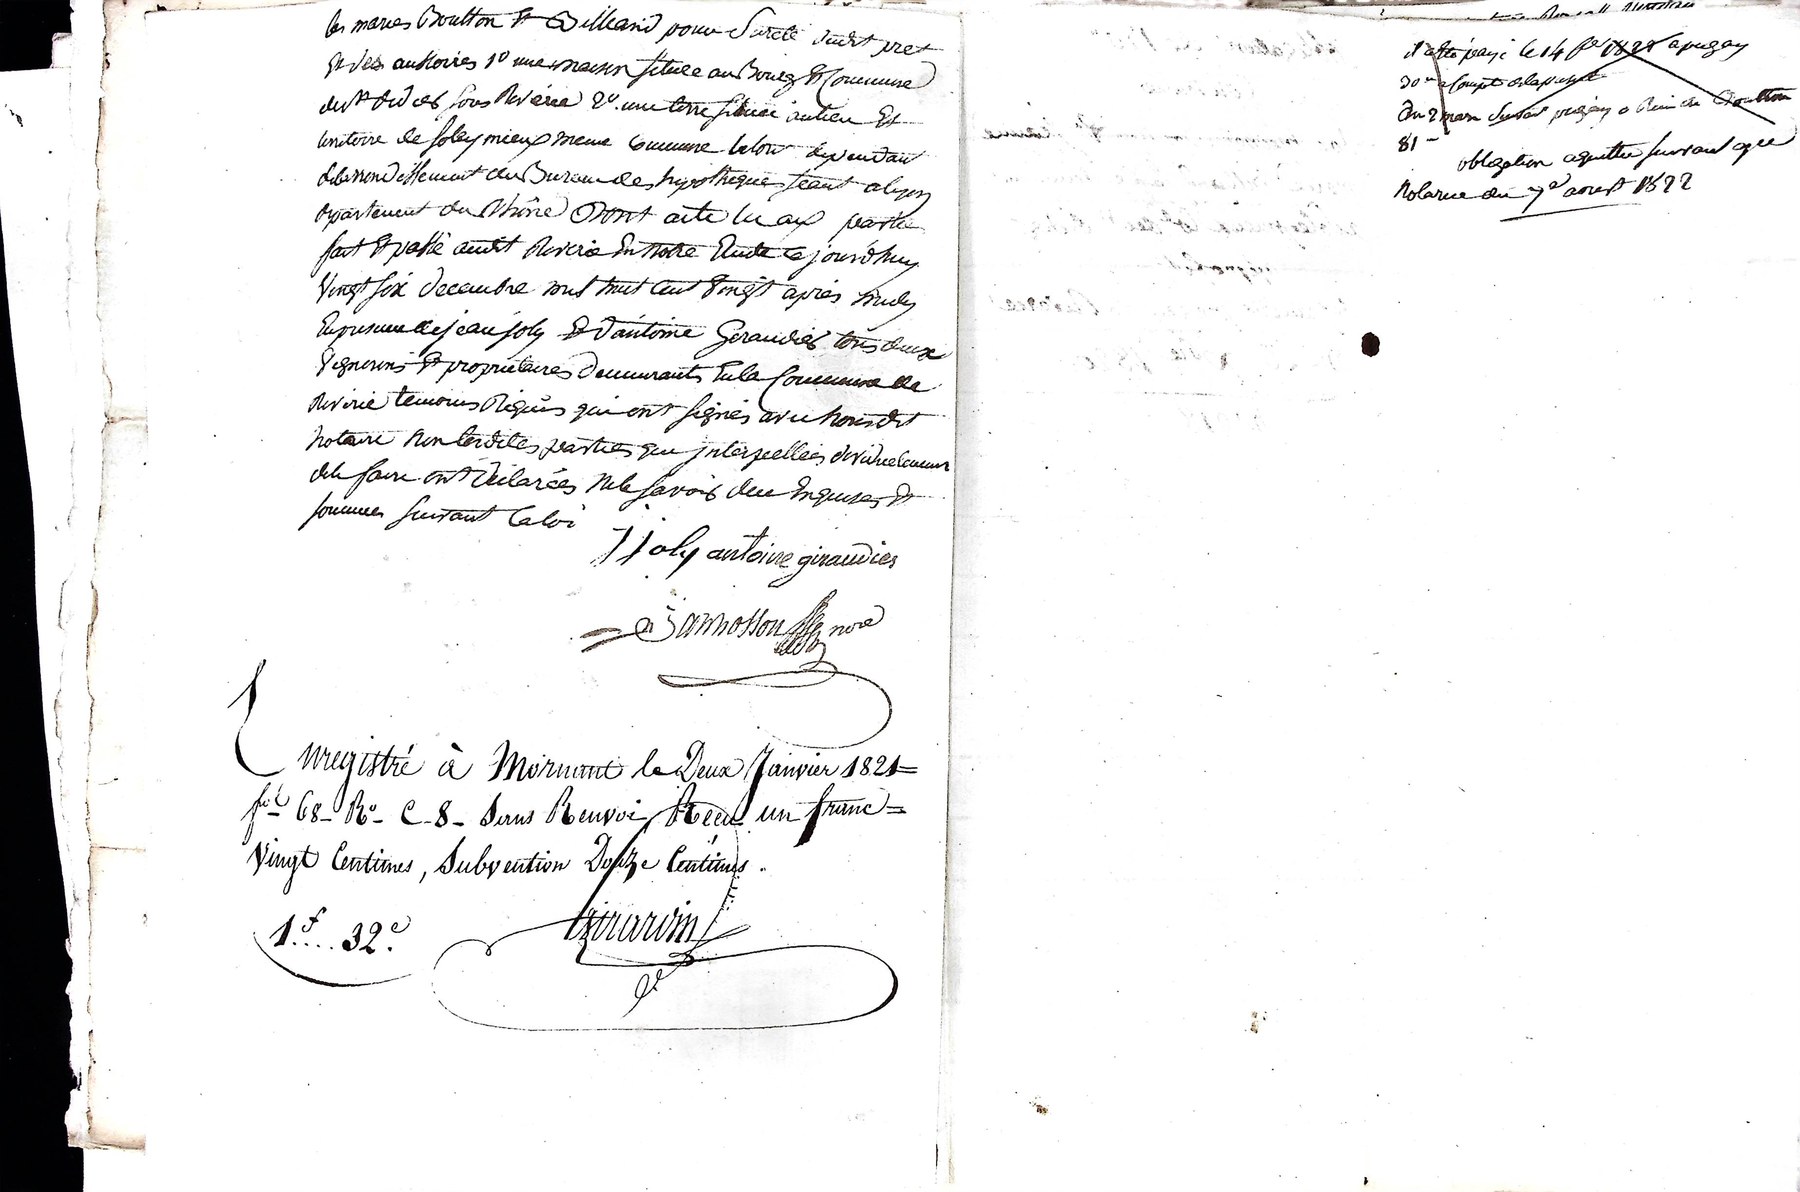 les maries Boulton Et Billiand pour Sureté dudit pret
Et des accessoires 1º une maison située au Bourg Et Commune
de St didier sous Riverie 2º une terre située au lieu Et
territoire de soleymieux meme commune le tout dependant
de l'arrondissement du Bureau des hypotheques séant a lyon
departement du Rhône Dont acte lu aux parties
fait Et passé audit Riverie En notre Etude Ce jourd'huy
Vingt six decembre mil huit Cent Vingt après midy
En presence de jean joly Et d'antoine Giraudier tous deux
Vignerons Et proprietaires demeurants En la Commune de
Riverie temoins Requis qui ont signés avec nous dit
notaire Non lesdites parties qui interpellées
de le faire ont déclarées Ne le savoir de ce Enquises Et
sommées suivant la loi
J joly antoine giraudier
Jamosson nore
Enregistré à Mornant le Deux Janvier 1821=
fol 68 - Ro - C - 8 - Sans Renvoi Reçu un franc=
Vingt Centimes, Subvention Douze Centimes.
Girardin
1f.... 32c.
il a été payé le 14
30
du 2 mars
81 -
obligation aquittée suivant acte
Notarié du 7 aoust 1822